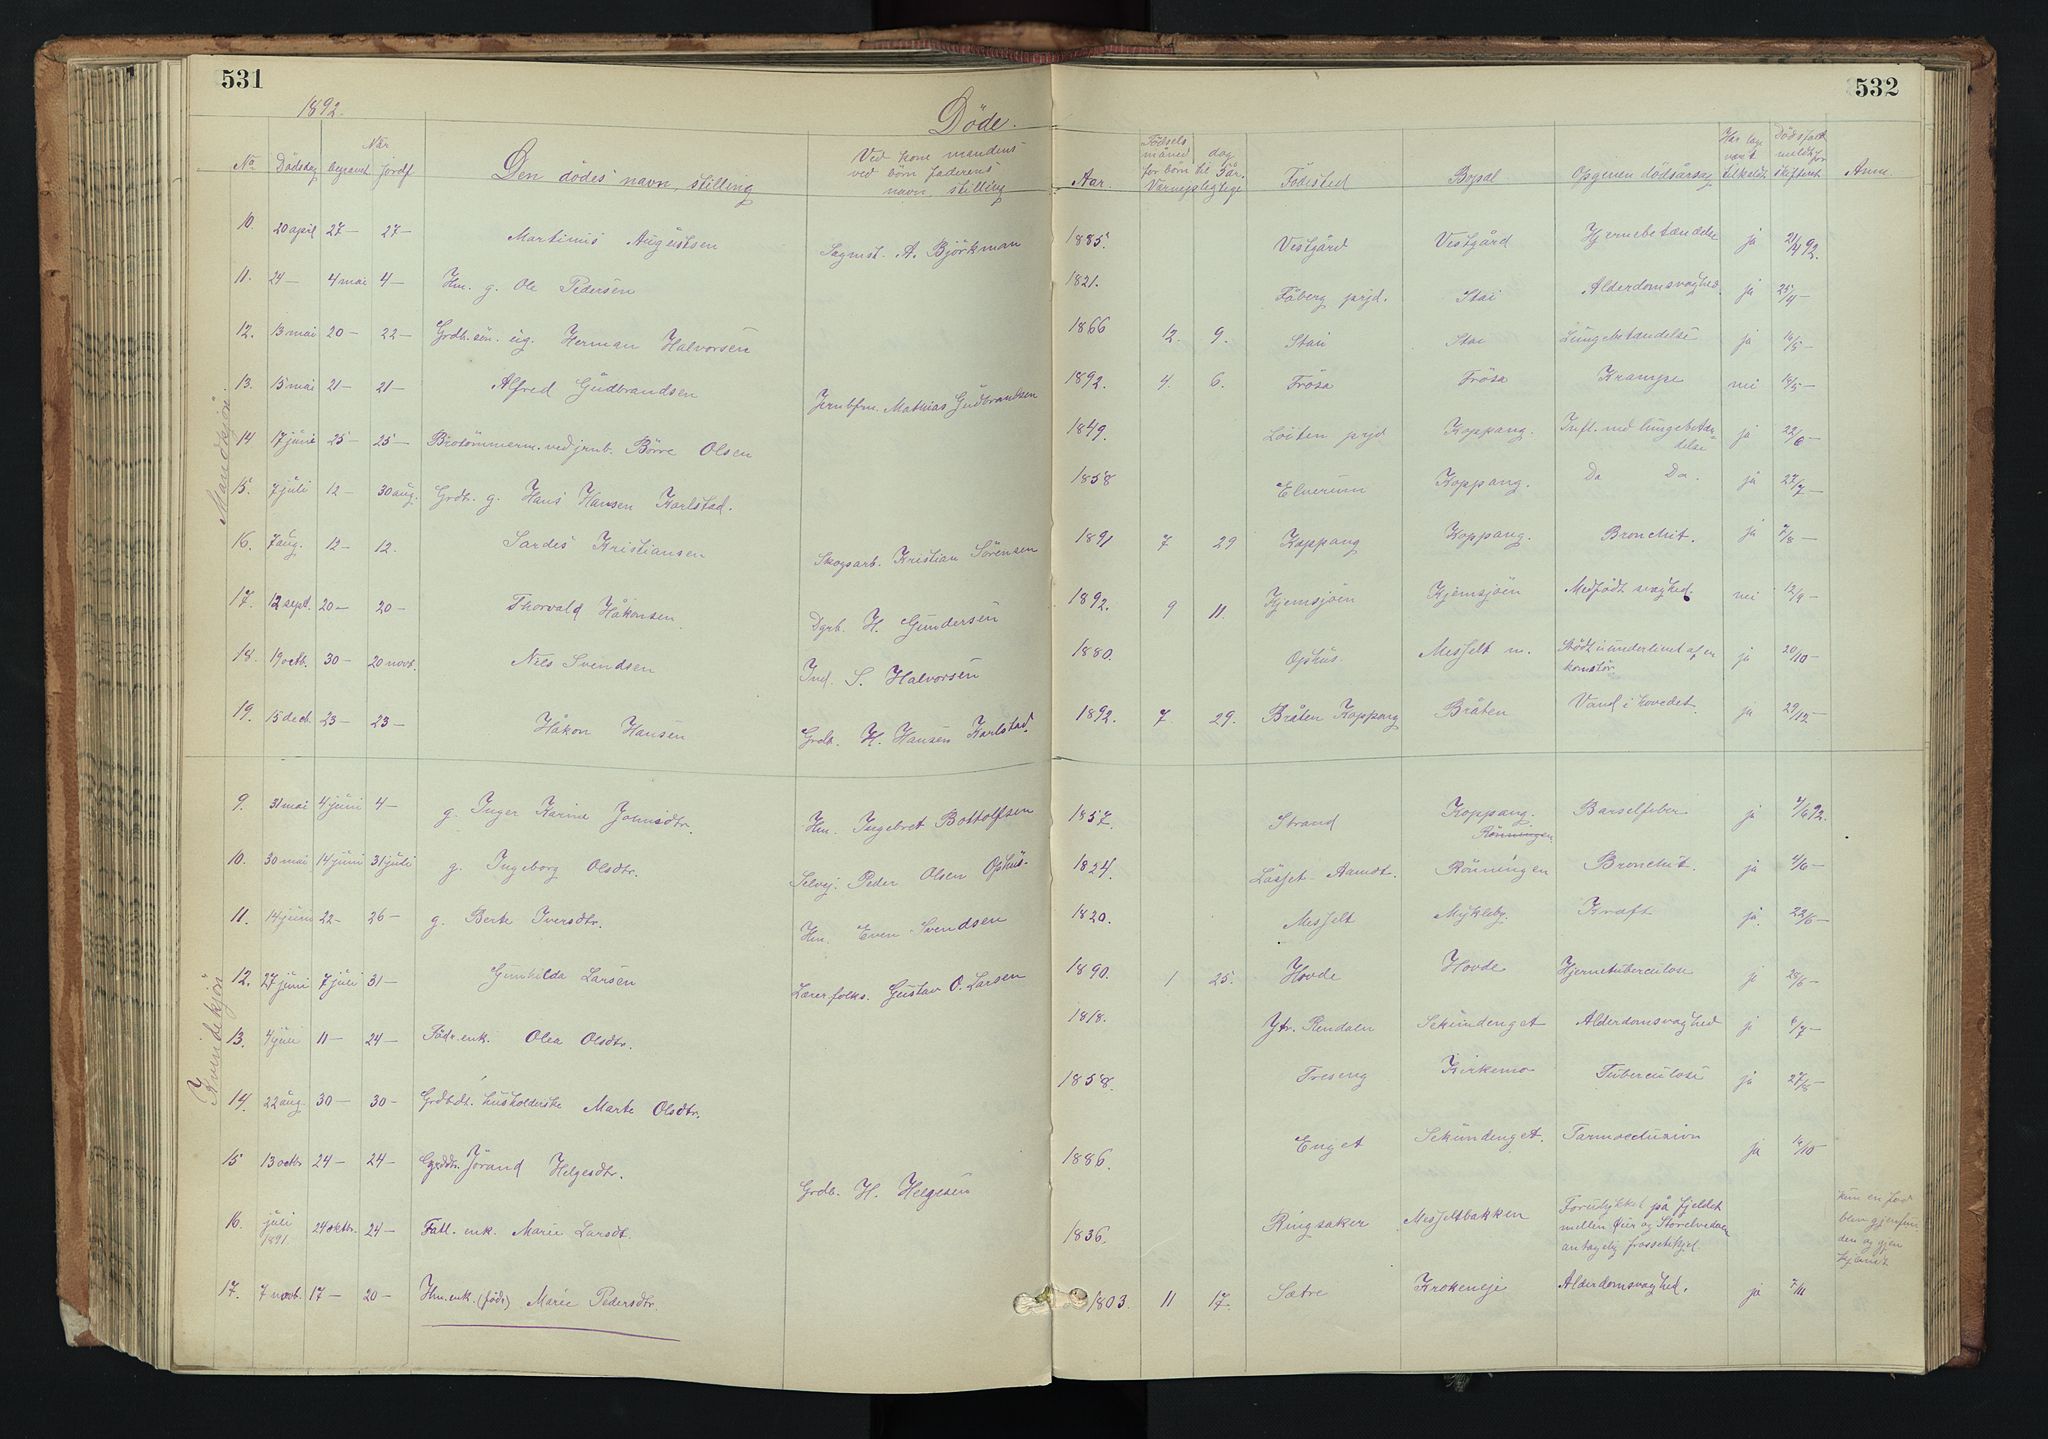 531
532
1892.
Döde.
No Dödsdag begravet Når jordf. Den dödes navn, stilling Ved kone mandens ved börn faderens navn, stilling Aar. Fødsels måned dag for börn til Får. Varnepligtige Födested Bopæl Opgiven dödsårsag Har læge været tilkaldt Dödsfald meldt for skifteret Anm.
Mandkjön
10. 20 april 27- 27- Martinus Augustsen Sagmst. A. Björkman 1885. Vestgård Vestgård Hjernebetændelse ja 21/4 92.
11. 24- 4 mai 4- Hm. g. Ole Pedersen 1821. Fåberg prjd. Stai Alderdomsvaghed. ja 25/4-
12. 13 mai 20- 22- Grdb.sön. ug. Herman Halvorsen 1866 12. 9. Stai Stai Lungebetændelse ja 16/5-
13. 15 mai 21- 21- Alfred Gudbrandsen Jrnbfm. Mathias Gudbrandsen 1892. 4. 6. Frösa Frösa Krampe nei 18/5-
14 17 juni 25- 25- Brotömmerm. ved jrnb. Börre Olsen 1849. Löiten prjd Koppang. Infl. med lungebetændelse ja 22/6-
15. 7 juli 12- 30 aug. Grdb. g. Hans Hansen Karlstad. 1858 Elverum Koppang. Do Do. ja 27/7-
16. 7 aug. 12- 12. Sardes Kristiansen Skogsarb. Kristian Sörensen 1891 7 29 Koppang Koppang. Bronchit. ja 7/8-
17. 12 sept. 20- 20- Thorvald Håkonsen Dgrb. H. Gundersen 1892. 9 11. Kjemsjöen Kjemsjöen Medfödt svaghed. nei 12/9-
18. 19 octb. 30- 20 novb. Nils Svendsen Ind. S. Halvorsen 1880. Ophus. Messelt m. Stödt i underlivet af en ja 20/10-
19. 15 dect. 23- 23- Håkon Hansen Grdb. H. Hansen Karlstad. 1892. 7. 29. Bråten Koppang Bråten Vand i hovedet. ja 29/12-
Kvindekjön
9. 31 mai 4 juni 4- g. Inger Karine Johnsdtr. Hm. Ingebret Bottolfsen 1857. Strand Koppang. Rönningen Barselfeber ja 7/6 92.
10. 30 mai 14 juni 31 juli g. Ingeborg Olsdtr. Selvej. Peder Olsen Ophus- 1824. Låsset Aamdt. Rönningen Bronchit. ja 4/6-
11. 14 juni 22- 26- g. Berte Iversdtr. Hm. Even Svendsen 1820. Messelt Mykleby. Kræft ja. 22/6-
12. 27 juni 7 juli 31- Gunhilda Larsen Lærer folks. Gustav O. Larsen 1890. 1 25. Hovde Hovde Hjernetuberculose ja 28/6-
13. 4 juli 11- 24- Födr.enk. Olea Olsdtr. 1818. Ytr. Rendalen Sekundenget Alderdomsvaghed ja 6/7-
14. 22 aug. 30- 30- Grdb.dt. husholderske Marte Olsdtr. 1858. Treseng Kirkemo Tuberculose ja 27/8-
15 13 octbr 24- 24- Jörand Helgesdtr. Grdb. H. Helgesen 1886. Enget Sekundenget. Tarmocclusion ja 14/10-
16. juli 1891. 24 oktbr. 24- Fatl. enk. Marie Larsdt. 1836. Ringsaker Messeltbakken Forulykket på fjeldet mellem og Storelvedalen antagelig frossetihjel. kun en fod blev gjenfunden og gjenkjendt
17. 7 novb. 17- 20- Hm.enk. (föder) Marie Pedersdtr. 1803. 11 17. Sætre Krokeneje Alderdomsvaghed. ja 7/11